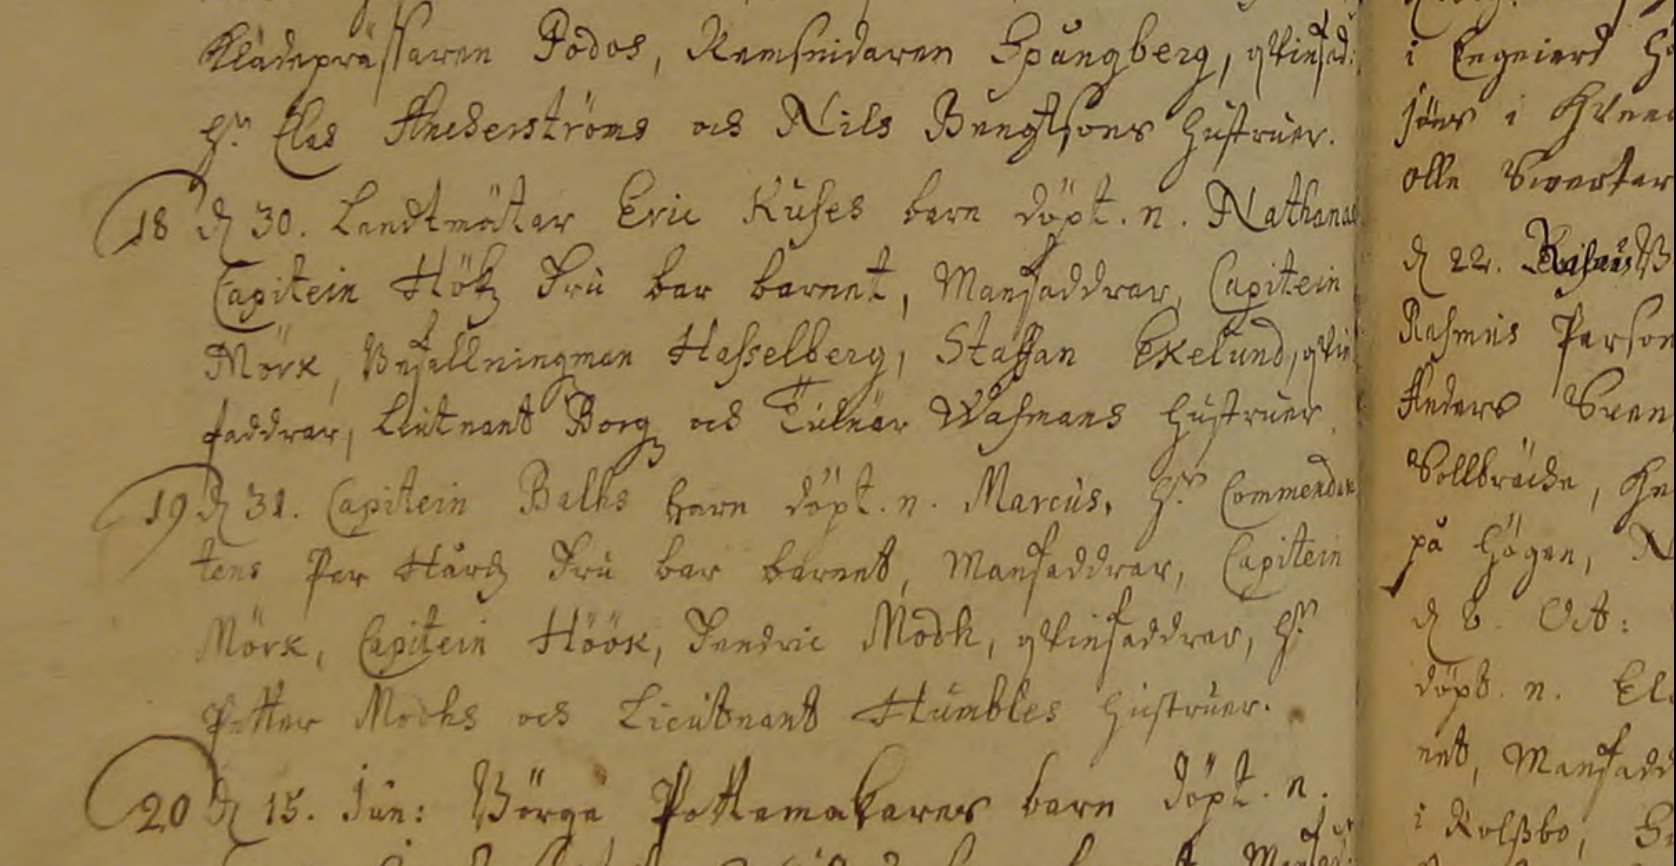 Klädeprässaren Podos, Remsnidaren Spångberg, qvinfad:
Hr. Clas Anckerströms och Nils Bengtsons hustruer.
18 d 30. Landtmätar Eric Kuses barn döpt. n. Nathanael
Capitein Hökz Fru bar barnet, Manfaddrar, Capitein
Mörk, Befallningman Hasselberg, Staffan Ekelund, qvin
faddrar, Leutnant Borg och Wasmans hustruer.
19 d 31. Capitein Balks barn döpt. n. Marcus. Hr. Commendan
tens Per Hårdz Fru bar barnet, Manfaddrar, Capitein
Mörk, Capitein Höök, Hendric Modh, qvinfaddrar, Hr.
Petter Modhs och Lieutnant Humbles hustruer.
20 d 15. Jun: Börge Pottemakares barn döpt. n.
i H
i
olle Swertar
d 22.
Rasmus Person
Anders Sven
på Högen, N
d 6. Oct:
döpt. n. El
net, Manfadd
i Rolsbo, S